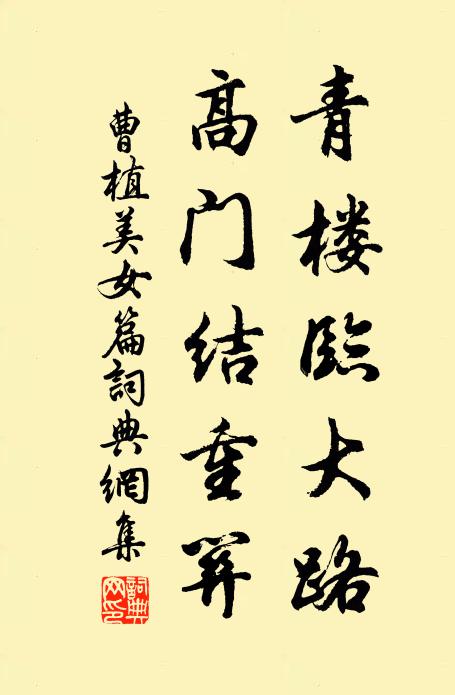 青楼臨大路
髙门结重関
曹植美女篇詞典網集
詞典网印